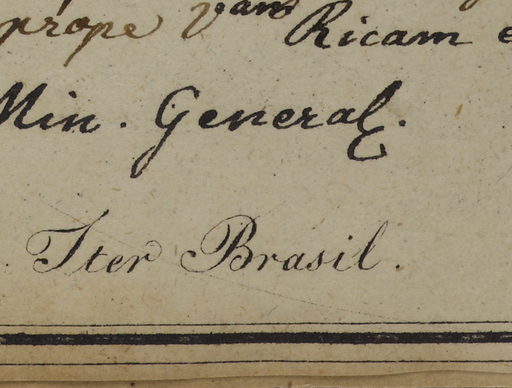 prope Vam Ricam
Min. General.
Iter Brasil.